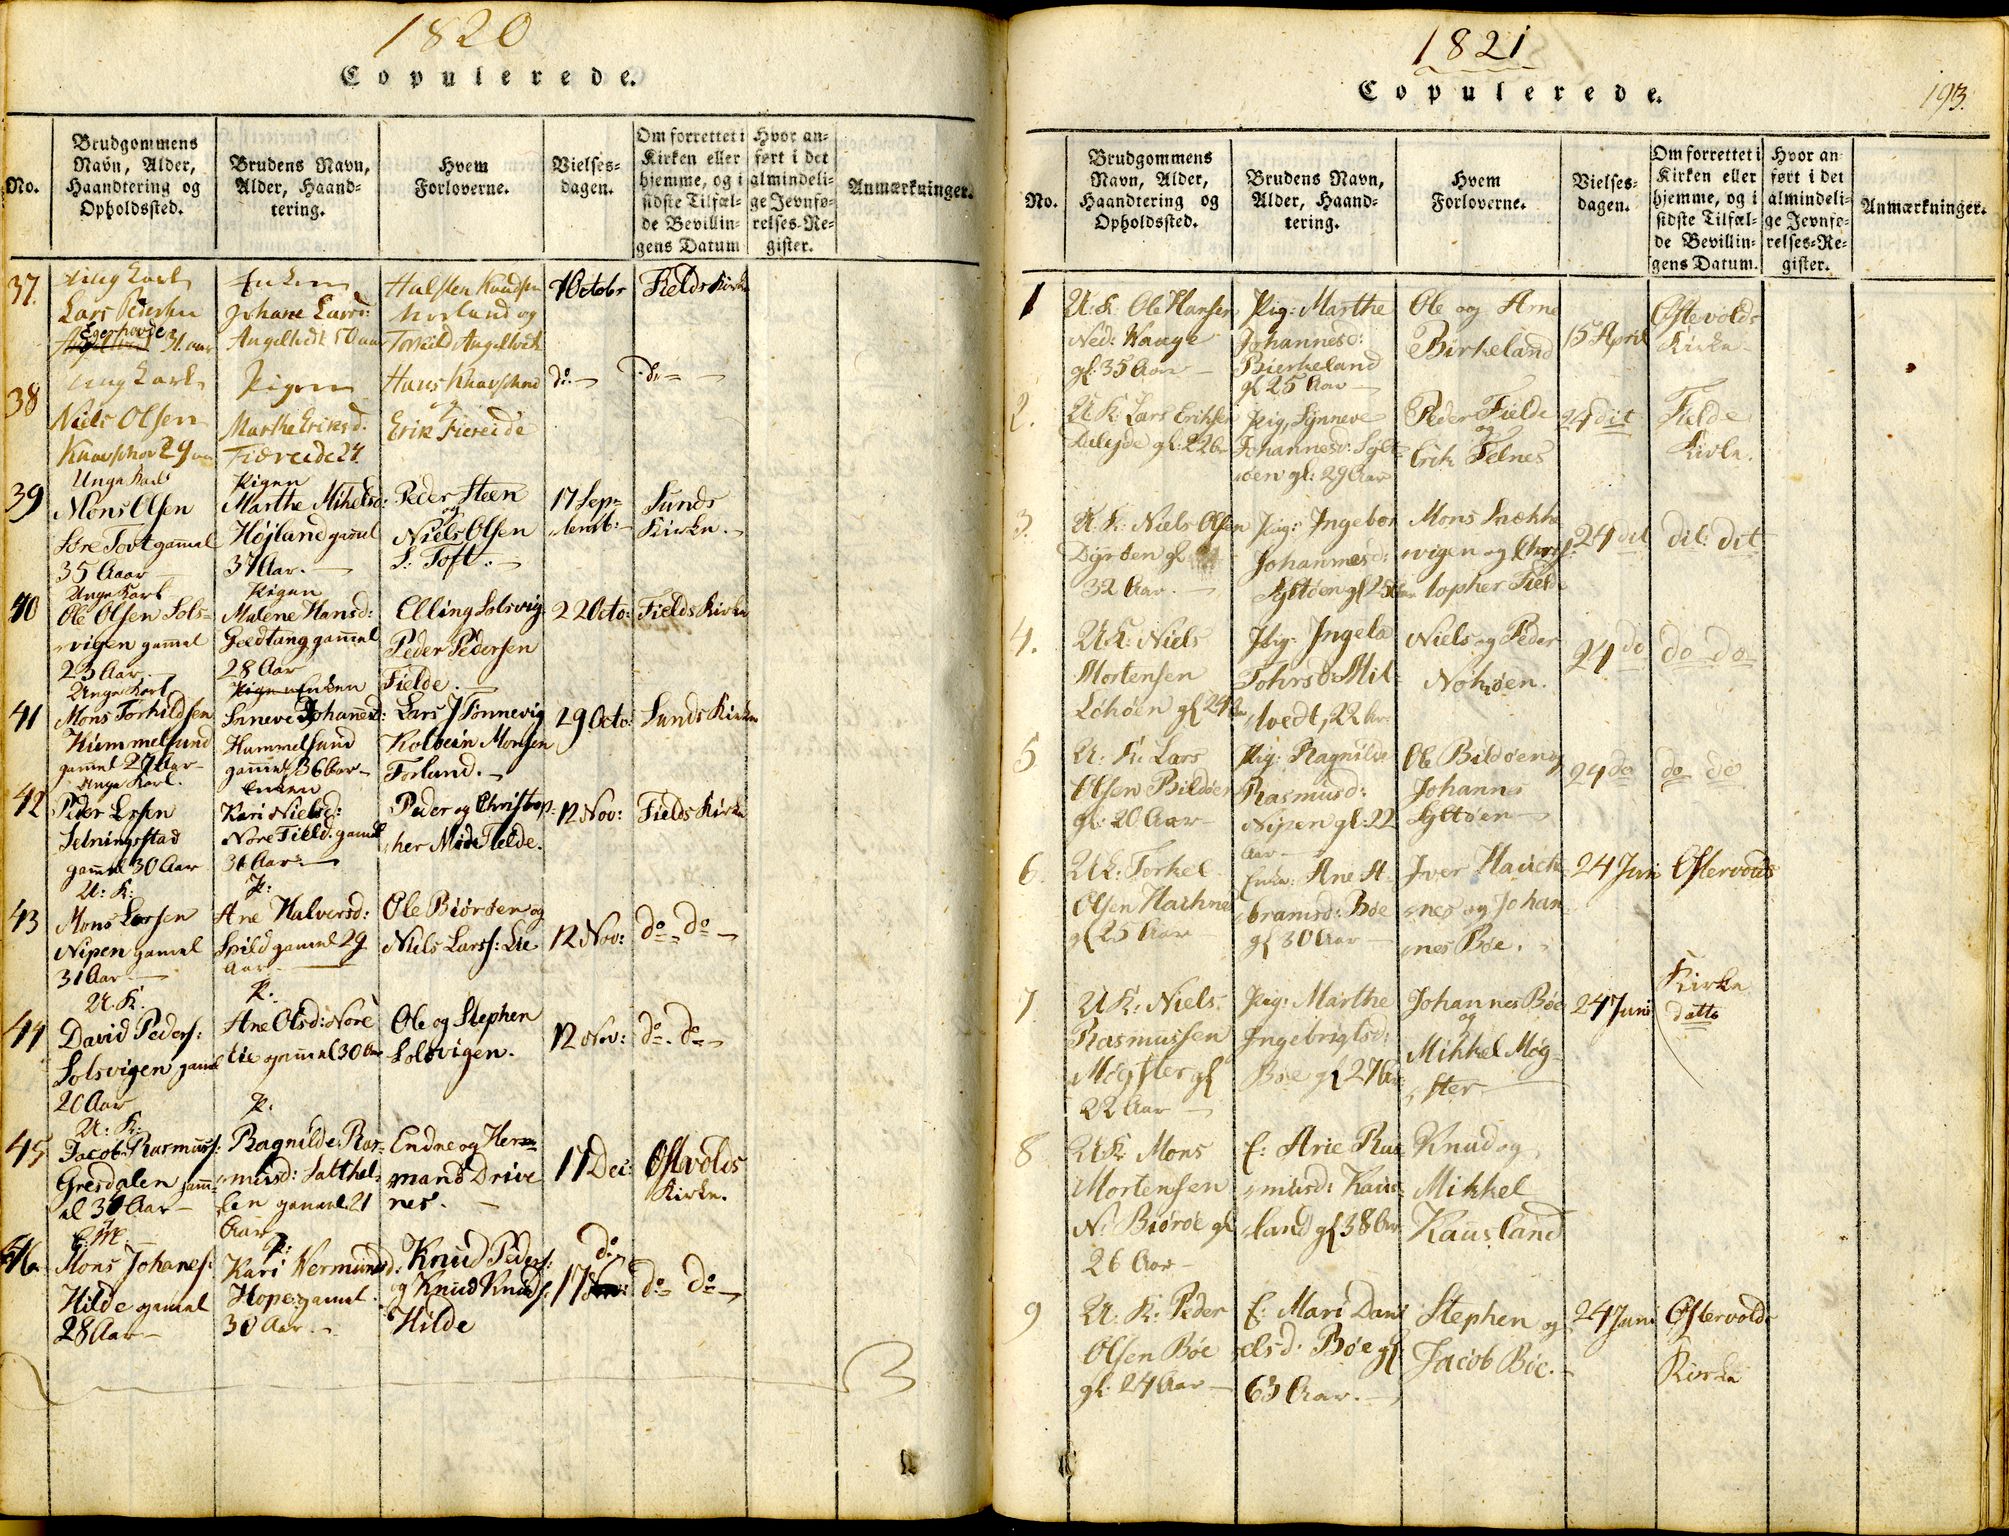 1820
Copulerede.
No.
Brudgommens
Navn, Alder,
Haandtering og
Opholdssted.
Brudens Navn,
Alder, Haand-
tering.
Hvem
Forloverne.
Vielses-
dagen.
Om forrettet i
Kirken eller
hjemme, og i
sidste Tilfæl-
de Bevillin-
gens Datum
Hvor an-
ført i det
almindeli-
ge Jevnfø-
relses-Re-
gister.
Anmærkninger.
37.
Ung Karl
Lars Pedersen
Egerhovde
31. aar
Enken
Johane Larsd:
Angeltvedt 50 aar
Halsten Knudsen
og
Torkild Angeltvedt
1 Octobr
Fields Kirke
38
Ung Karl
Niels Olsen
Knavshov 29 aar
Pigen
Marthe Eriksd.
Fiereide 24.
Hans Knavshov
og
Erik Fiereide
do.
do
39
Unge Karl
Mons Olsen
Søre Tovt gamel
35 Aaar
Pigen
Marthe Mikelsd:
Højland gamel
37 Aar.
Peder Steen
og
Niels Olsen
S: Toft.
17 Sep-
temb:
Sunds
Kirke.
40
Unge Karl
Ole Olsen Sols-
vigen gamel
23 Aar.
Pigen
Malene Hansd:
Geedtang gamel
28 Aar
Elling Solsvig
Peder Pedersen
Fielde.
22 Octo:
Fields Kirke
41
Unge Karl
Mons Torkildsen
Hummelsund
gamel 27 Aar
Enken
Sineve Johanesd:
Hummelsund
gamel 36 Aar
Lars J Tønnevig
Kolbein Monsen
Forland.
29 Octo:
Sunds Kirke
42
Unge Karl.
Peder Ersen
Selningsstad
gamel 30 Aar
Enken
Kari Nielsd:
Nore Field. gamel
31 Aar.
Peder og Christop-
her Mide Fielde.
12 Nov:
Fields Kirke
43
U: K:
Mons Larsen
Nipen gamel
31 Aar
P:
Ane Halversd:
Spild gamel 29
Aar
Ole Biørøen og
Niels Larss: Lie
12 Nov:
do do
44
U. K.
David Peders:
Solsvigen gamel
20 Aar
P.
Ane Olsd: Nore
Lie gammel 30 Aar
Ole og Stephen
Solsvigen.
12 Nov:
do. do
45
U: K:
Jacob Rasmuss:
Gresdalen gamm-
el 31 Aar
P.
Ragnilde Ras-
musd: Satthel-
len gamel 21
Aar
Endre og Her-
mand Drive
nes.
17 Dec:
Ostvolds
Kirke.
46.
Mons Johanes:
Hilde gamel
28 Aar
P:
Kari Vermunds d:
Hope gamel
30 Aar.
Knud Peders:
og Knud Knuds:
Hilde
do
17
do do
1821
Copulerede.
193.
No.
Brudgommens
Navn, Alder,
Haandtering og
Opholdssted.
Brudens Navn,
Alder, Haand-
tering.
Hvem
Forloverne.
Vielses-
dagen.
Om forrettet i
Kirken eller
hjemme, og i
sidste Tilfæl-
de Bevillin-
gens Datum.
Hvor an-
ført i det
almindeli-
ge Jevnfø-
relses-Re-
gister.
Anmærkninger.
1
U: K: Ole Hansen
Ned: Waage
gl: 35 Aar
Pig: Marthe
Johannesd:
Bierkeland
gl 25 Aar
Ole og Arne
Birkeland
15 April
Østevolds
Kirke
2.
U K: Lars Eriksen
gl: 22 Aar
Pig: Synneve
Johannesd: Sylt-
øen gl: 29 Aar
Peder Fielde
og
Erik Telnes
24 dit
Fielde
Kirke.
3.
U. K: Niels Olsen
Dyrøen gl:
32 Aar.
Pig: Ingebor
Johannesd:
Syltøen gl 25 Aar
Mons Snekke
vigen og Chris-
topher Field
24 dit
dit dit
4.
U K: Niels
Mortensen
Løhøen gl 24 Aar
Pig: Ingela
Tohrsd: Mil-
dvedt, 22 Aar
Niels og Peder
Nohøen.
24 do
do do
5
U: K: Lars
Olsen Bildøen
gl: 20 Aar
Pig: Ragnilde
Rasmusd:
Nipen gl: 22
Aar
Ole Bildøen og
Johannes
Syltøen
24 do
do do
6
U K: Torkel
Olsen Hachne
gl 25 Aar
Enke: Ane A-
bramsd: Bøe
gl 30 Aar
Iver Hauck-
nes og Johan-
nes Bøe.
24 Juni
Østervolds
Kirke
7
U K: Niels
Rasmussen
Møgster gl
22 Aar
Pig: Marthe
Ingebrigtsd:
Bøe gl 27 Aar
Johannes Bøe
og
Mikkel Møg-
ster
24 Juni
datto
8
U K Mons
Mortensen
N: Biørøe gl
26 Aar
E: Arie Ras
musd: Kaus-
land gl 38 Aar
Knud og
Mikkel
Kausland
9
U. K: Peder
Olsen Bøe
gl: 24 Aar
E: Mari Dani
elsd: Bøe gl
63 Aar.
Stephen og
Jacob Bøe.
24 Juni
Østervolds
Kirke